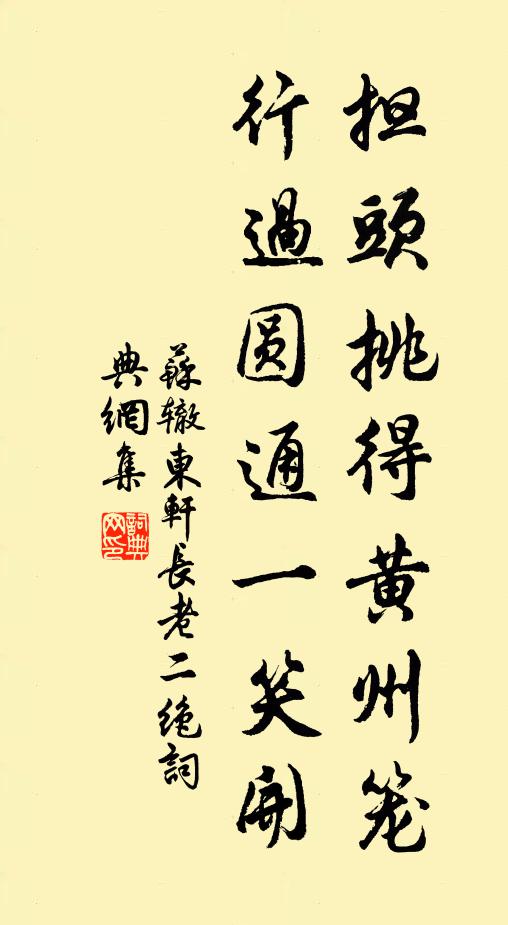 担頭挑得黄州笼
行過圆通一笑開
蘇辙東軒長老二绝詞
典網集
詞典
网印